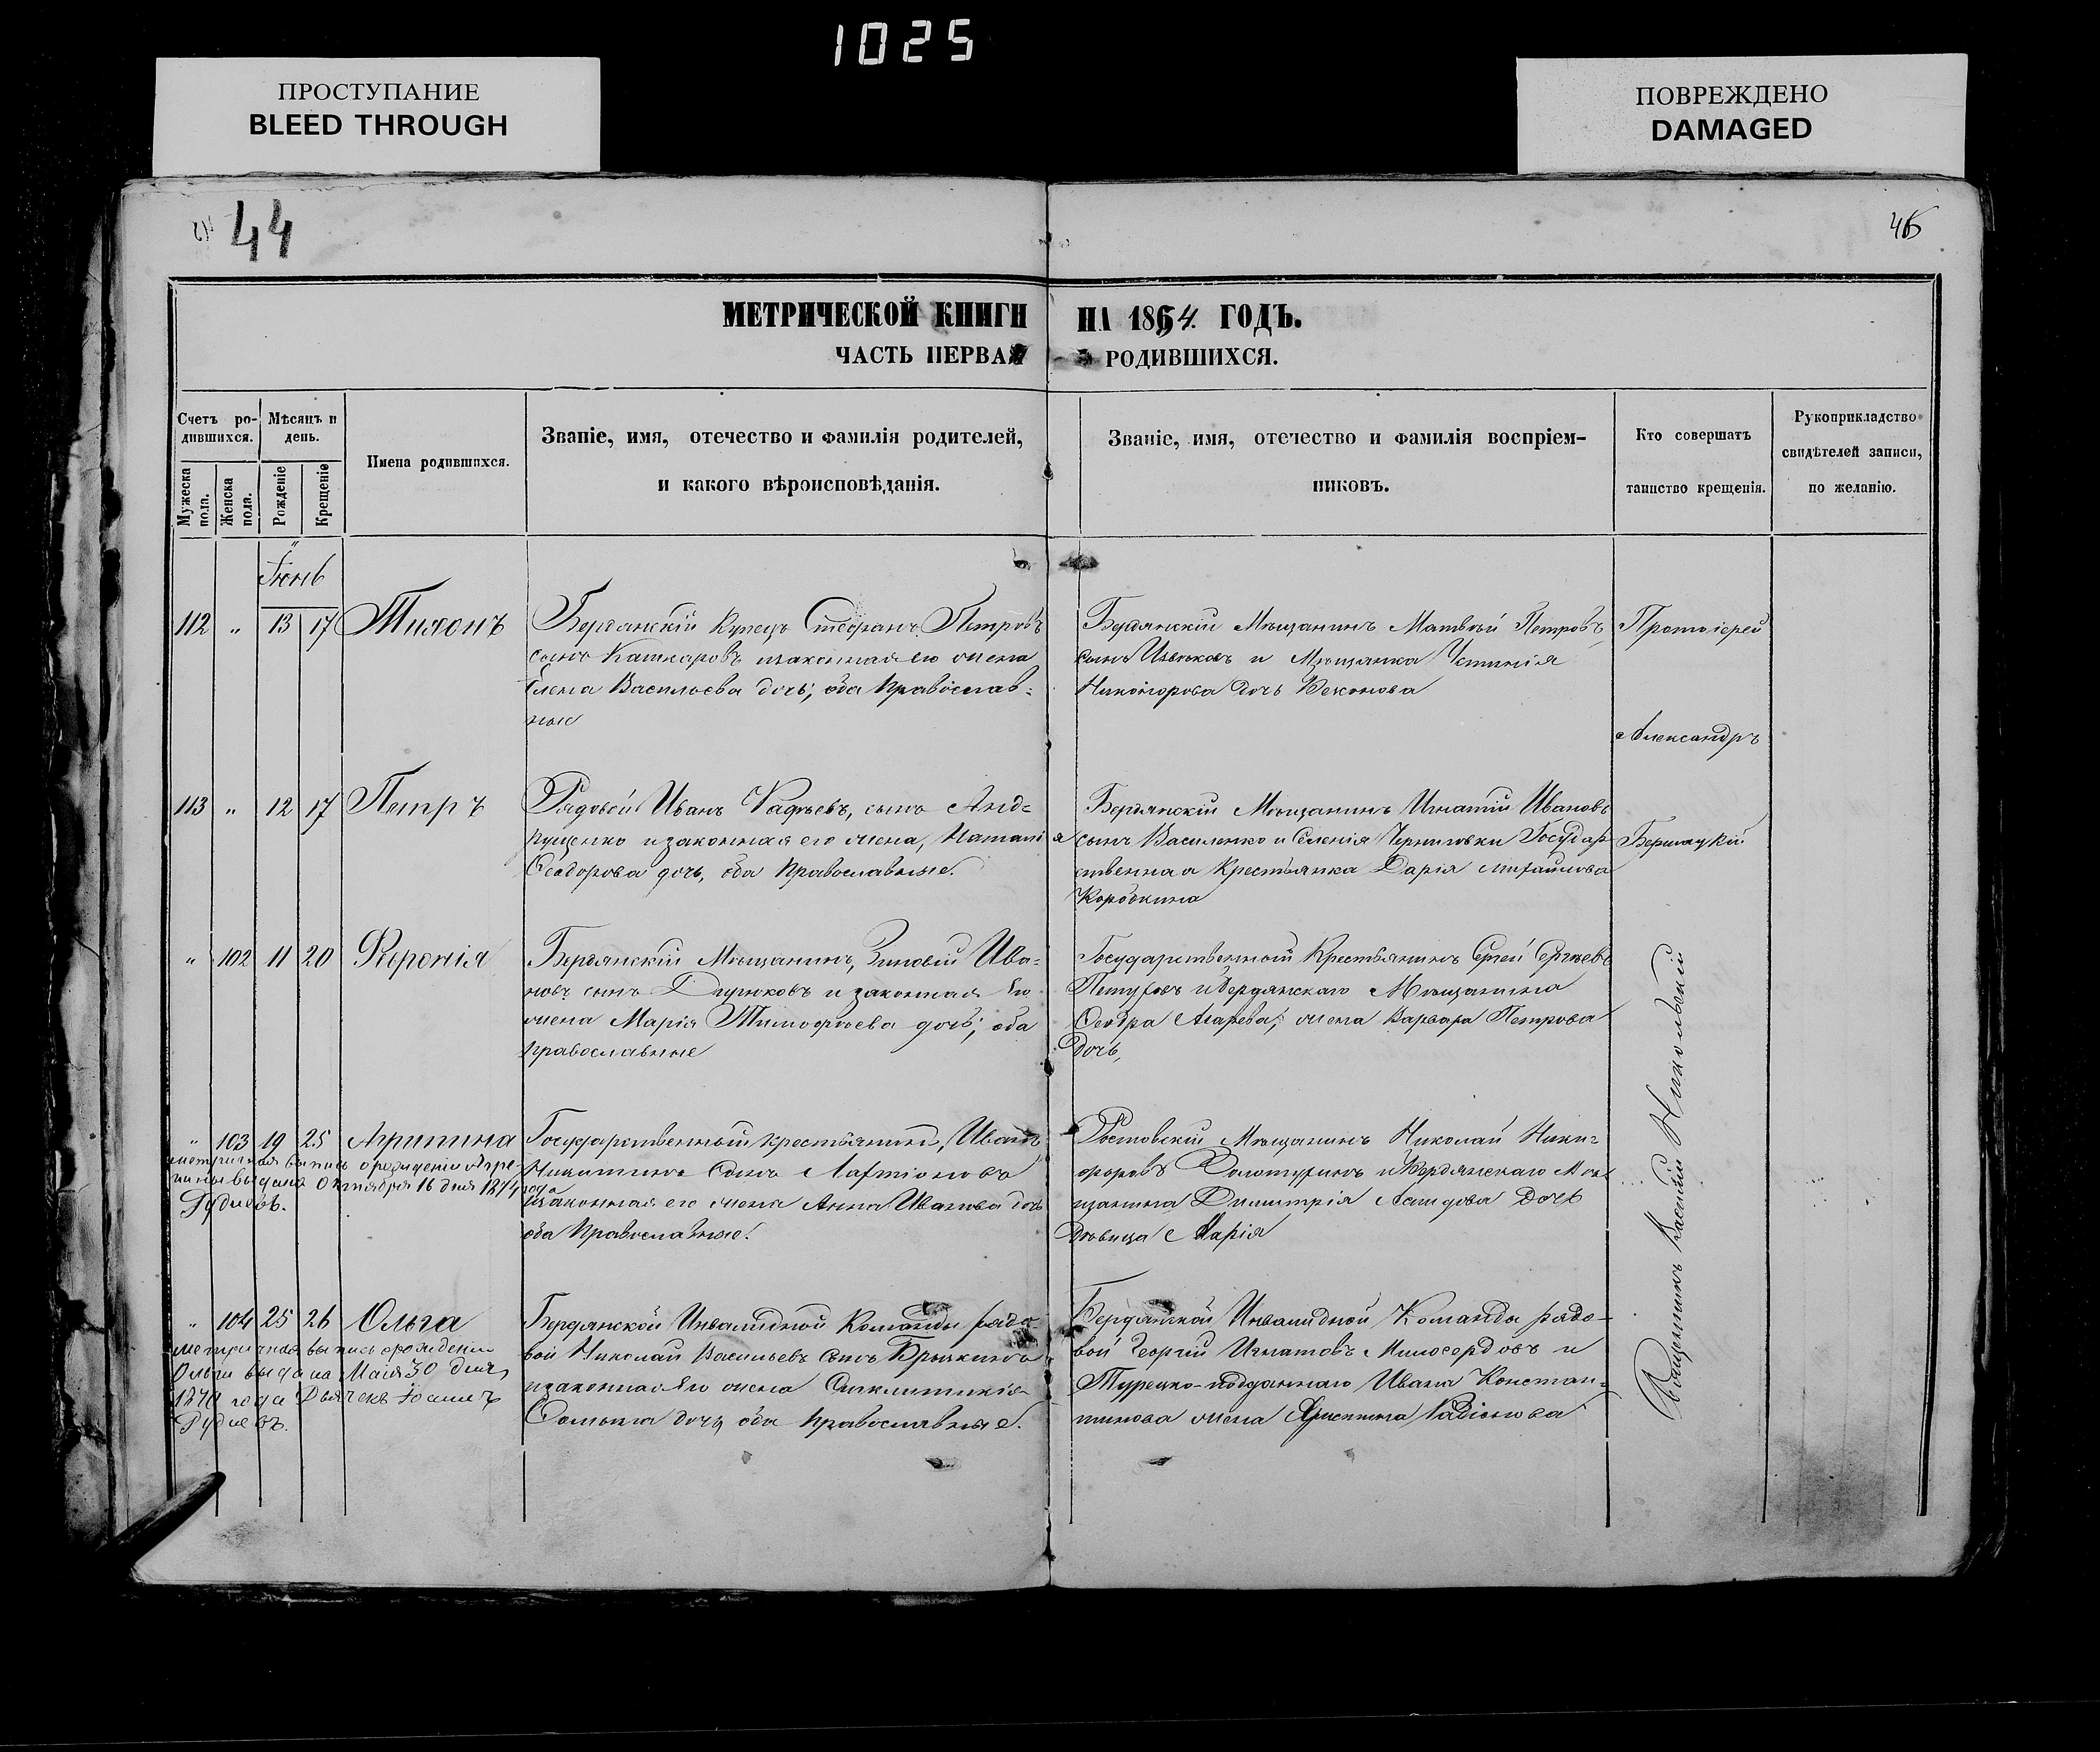 1025
ПРОСТУПАНИЕ
BLEED THROUGH
ПОВРЕЖДЕНО
DAMAGED
44
МЕТРИЧЕСКОЙ КНИГИ НА 1864. ГОДЪ.
ЧАСТЬ ПЕРВАЯ РОДИВШИХСЯ.
Счетъ ро-
дившихся.
Мужеска пола.
Женска пола.
Мѣсяцъ и
день.
Рожденіе
Крещеніе
Имена родившихся.
Званіе, имя, отечество и фамилія родителей,
и какого вѣроисповѣданія.
Званіе, имя, отечество и фамилія воспріем-
никовъ.
Кто совершалъ
таинство крещенія.
Рукоприкладство
свидѣтелей записи,
по желанію.
Іюнь
112 " 13 17 Тихонъ
Бердянскій Купецъ Стефанъ Петровъ
сынъ Кашкаровъ изаконная его жена
Елена Васильева дочь; оба Православ=
ные
Бердянскій Мѣщанинъ Матвѣй Петровъ
сынъ и Мѣщанка Устинія
Никонорова дочь
Протоіерей
Александръ
113 " 12 17 Петръ
Рядовой Иванъ Фадѣевъ, сынъ Анд=
рущенко изаконная его жена, Наталія
Феодорова дочь, оба Православные.
Бердянскій Мѣщанинъ Игнатій Ивановъ
сынъ Василенко и Селенія Черниговки Государ
ственная Крестьянка Дарія Михайлова
Коробкина
" 102 11 20 Февронія
Бердянскій Мѣщанинъ, Зиновій Ива=
новъ сынъ и законная его
жена Марія Тимофѣева дочь; оба
православные
Государственной Крестьянинъ Сергѣй Сергѣевъ
Петуховъ и Бердянскаго Мѣщанина
Феодра жена Варвара Петрова
дочь,
" 103 19 25 Агрипина
метричная выпись о рожденіи Агре-
пины выдана Октября 16 дня 1874 года
Рудневъ.
Государственный крестьянинъ, Иванъ
Никитинъ Сынъ Лафтіоновъ
изаконная его жена Анна Иванова дочь
оба Православные.
Ростовскій Мѣщанинъ Николай Ники=
форовъ и Бердянскаго Мѣ
щанина Димитрія дочь
Дѣвица Марія
" 104 25 26 Ольга
метричная выпись орожденіи
Ольги выдана Маія 30 дня,
года Дьячекъ Іоаннъ
Рудневъ.
Бердянской Инвалидной Команды рядо-
вой Николай Васильевъ Сынъ Брыкинъ
изаконная его жена Синклитикія
дочь, оба православные.
Бердянской Инвалидной Команды рядо-
вой Георгій Игнатовъ Милосердовъ и
Турецко-подданнаго Ивана Констан=
тинова жена
Священникъ Василій Никольскій